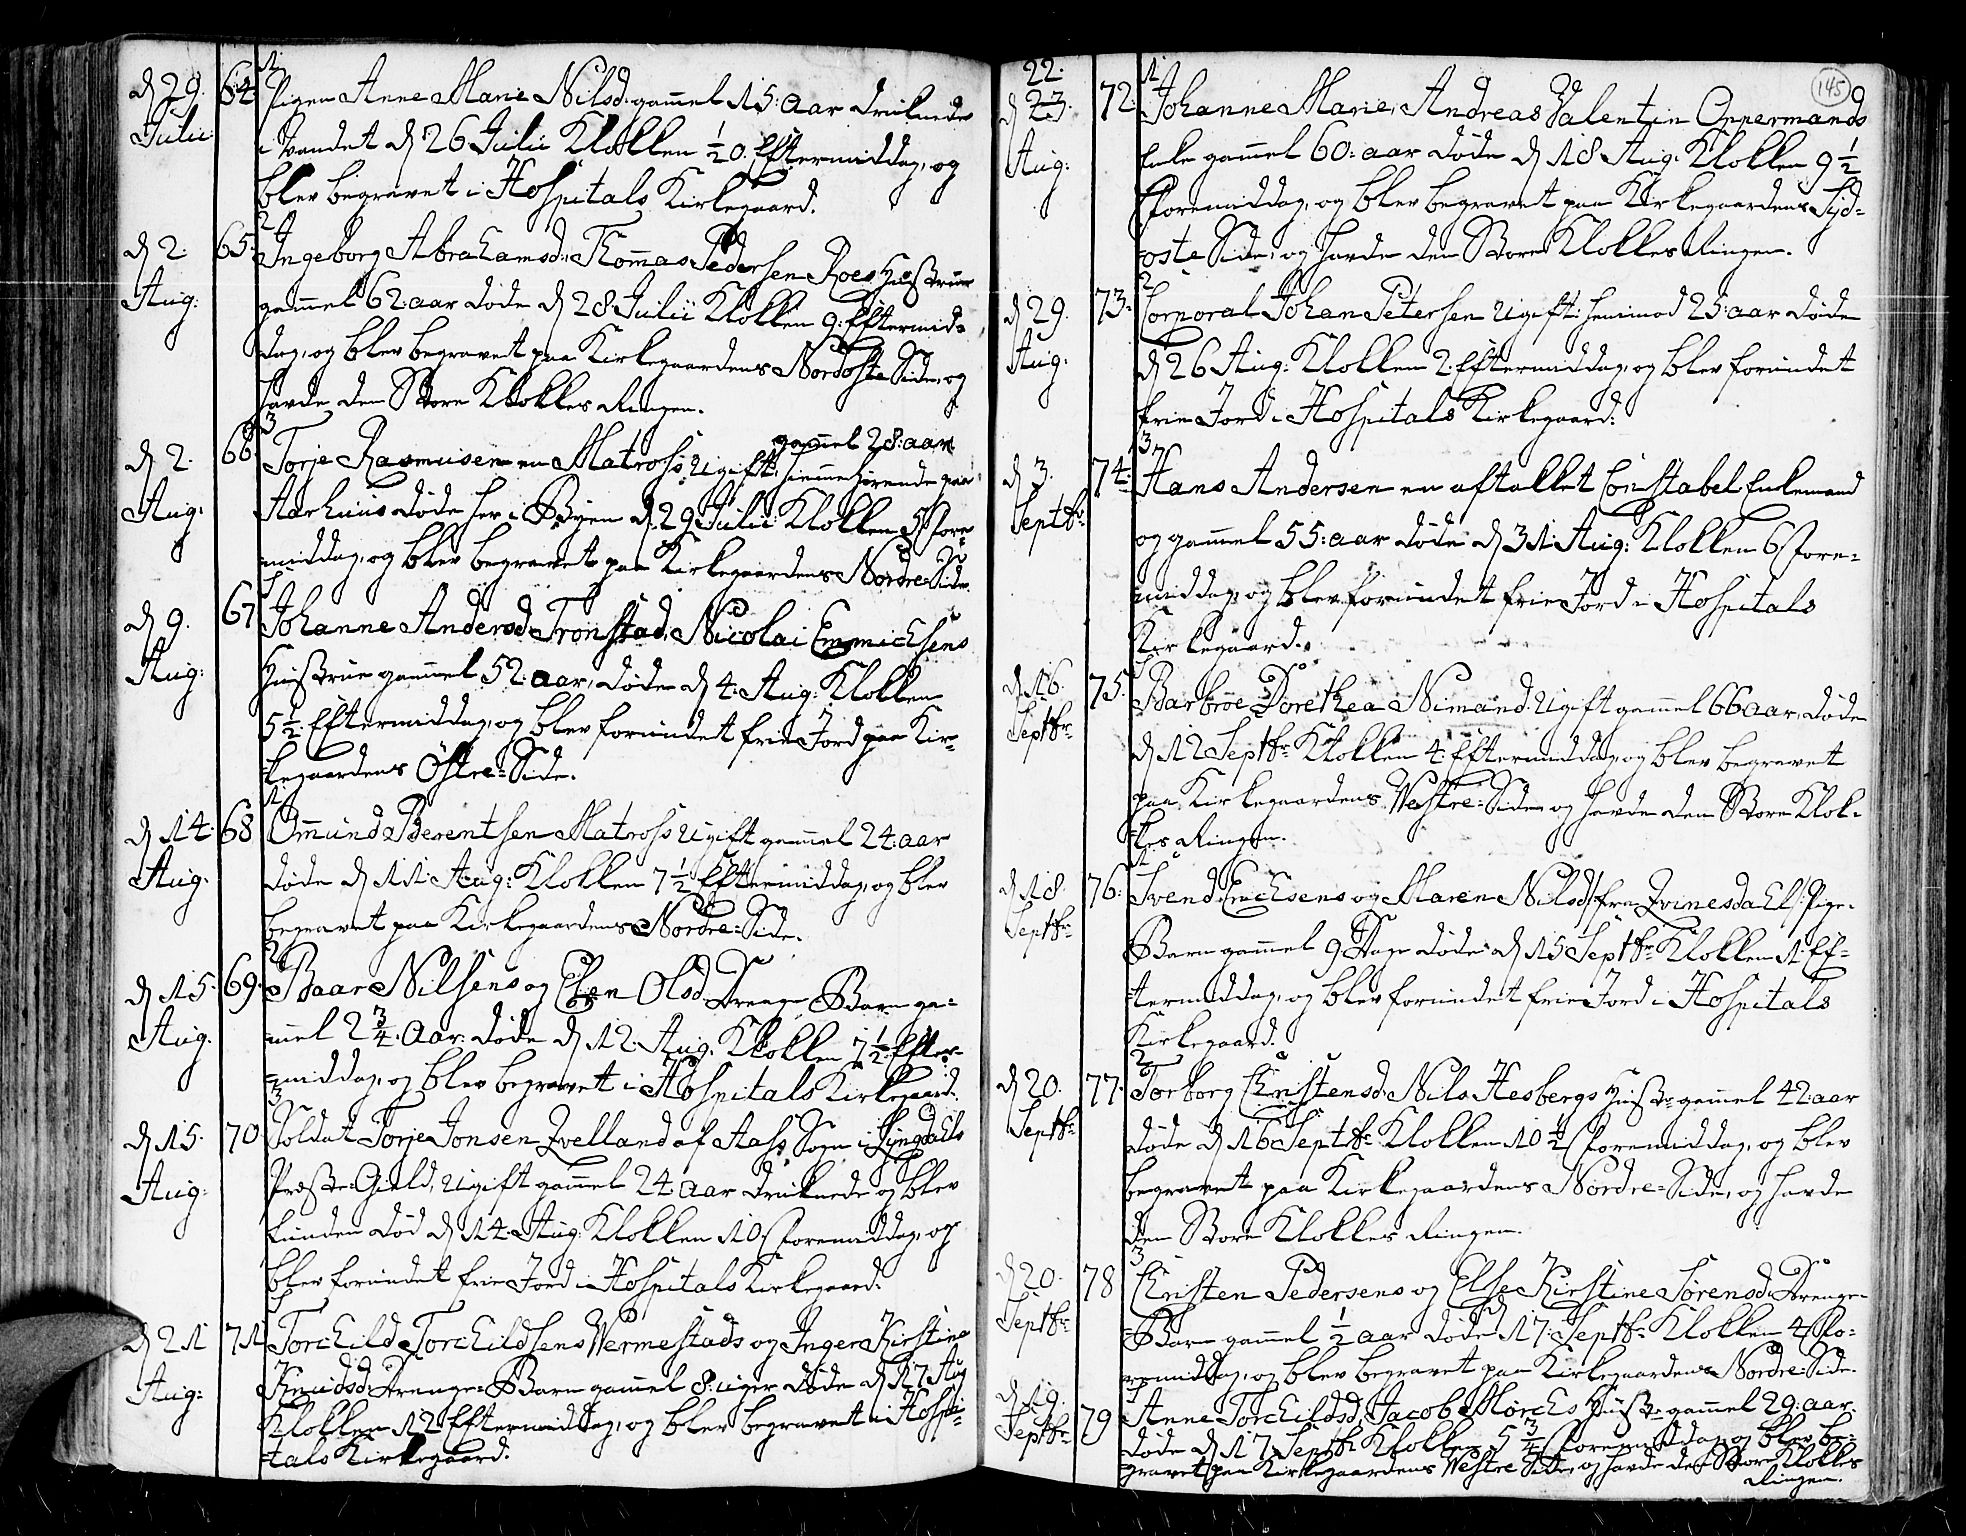 d 29. Julii 64.
1.
Pigen Anne Marie Nilsd. gammel 15: aar druknede
i Vandet d 26 Julii Klokken ½0. Eftermiddag, og
blev begravet i Hospitals Kirkegaard.
d 2. Aug: 65.
2
Ingeborg Abrahamsd: Thommas Pedersen Roes Hustrue
gammel 62: aar døde d 28 Julii Klokken 9. Eftermid=
dag, og blev begravet paa Kirkegaardens Nordoste Side, og
havde den Store Klokkes Ringen.
d 2. Aug: 66.
3
gammel 28: aar
Torje Rasmusen en Matross, Ugift, hiemmehørende paa
Aarhuus døde her i Byen d. 29 Julii Klokken 5 Fore=
middag, og blev begravet paa Kirkegaardens Nordre Side
d 9. Aug: 67
Johanne Andersd. Tronstad, Nicolai Emmichsens
Hustrue gammel 52: aar, døde d 4. Aug: Klokken
5½ Eftermiddag, og blev forundet frie Jord paa Kir=
kegaardens Östre=Side.
d 14. Aug: 68
1
Ommund Berentsen Matross ugift gammel 24: aar
døde d 11: Aug: Klokken 7½ Eftermiddag, og blev
begravet paa Kirkegaardens Nordre=Side.
d 15. Aug. 69.
2
Baar Nilsens og Elen Olsd Drenge Barn ga=
mmel 2¾. Aar: døde d 12. Aug. Klokken 7½ Efter=
middag, og blev begravet i Hospitals Kirkegaard.
d 15. Aug: 70
3
Soldat Torje Jonsen Qvelland af Aahs Sogn i Lyngdahls
Præste=Gield, Ugift gammel 24: aar druknede og blev
funden død d 14. Aug: Klokken 10 Foremiddag, og
blev forundet frie Jord i Hospitals Kirkegaard.
d 21 Aug: 71
Torchild Torchildsens Vermestads og Inger Kirstine
Knudsd: Drenge=Barn gammel 8: uger døde d 17 Aug
Klokken 12 Eftermiddag, og blev begravet i Hospi=
tals Kirkegaard.
145
22.
d 23. Aug: 72.
1
Johanne Marie, Andreas Valentin Oppermands
Enke gammel 60: aar døde d 18 Aug: Klokken 9½
Foremiddag, og blev begravet paa Kirkegaardens Syd=
oste Side, og havde den Store Klokkes Ringen.
d 29. Aug: 73.
2
Corporal Johan Petersen Ugift: henimod 25: aar døde
d 26 Aug: Klokken 2. Eftermiddag, og blev forundet
frie Jord i Hospitals Kirkegaard:
d 3. Septbr 74.
3
Hans Andersen en aftakket Constabel Enkemand
og gammel 55: aar døde d 31: Aug: Klokken 6 Fore=
middag, og blev forundet frie Jord i Hospitals
Kirkegaard.
d 16. Septbr 75.
Barbroe Dorethea Nimand. Ugift gammel 66 aar, døde
d 12 Septbr Klokken 4. Eftermiddag, og blev begravet
paa Kirkegaardens Vestre=Side, og havde den Store Klok=
kes Ringen.
d 18. Septbr 76.
1
Svend Erichsens og Maren Nilsd /: fra Qvinesdahl :/ Pige=
Barn gammel 9 Dage døde d 15 Septbr Klokken 1. Ef=
termiddag, og blev forundet frie Jord i Hospitals
Kirkegaard.
d 20. Septbr 77.
2
Torborg Christensd: Nils Hesbergs Hustr gammel 42: aar
døde d 16 Septbr Klokken 10½ Foremiddag, og blev
begravet paa Kirkegaardens Nordre=Side, og havde
den Store Klokkes Ringen.
d 20. Septbr 78
3
Christen Pedersens og Else Kirstine Sørensd: Drenge=
Barn gammel ½ aar døde 17: Septbr Klokken 4 Fo=
remiddag, og blev begravet paa Kirkegaardens Nordre=Side.
d 19. Septbr 79
Anne Torchildsd, Jacob Mørchs Hustr gammel 29: aar.
døde d 17 Septbr Klokken 5¾ Foremiddag, og blev be=
gravet paa Kirkegaardens Vestre Side, og havde den Store Klokkes
Ringen.